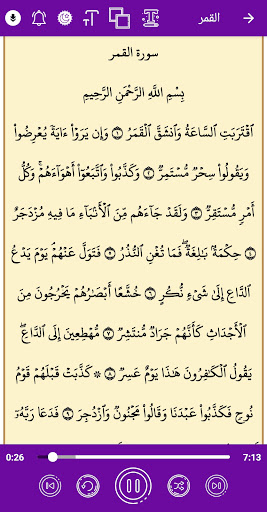 القمر
سورة القمر
بِسْمِ اللَّهِ الرَّحْمَنِ الرَّحِيمِ
ٱقْتَرَبَتِ ٱلسَّاعَةُ وَٱنشَقَّ ٱلْقَمَرُ ١ وَإِن يَرَوْا۟ ءَايَةً يُعْرِضُوا۟
وَيَقُولُوا۟ سِحْرٌ مُّسْتَمِرٌّ ٢ وَكَذَّبُوا۟ وَٱتَّبَعُوٓا۟ أَهْوَآءَهُمْ ۚ وَكُلُّ
أَمْرٍ مُّسْتَقِرٌّ ٣ وَلَقَدْ جَآءَهُم مِّنَ ٱلْأَنۢبَآءِ مَا فِيهِ مُزْدَجَرٌ
٤ حِكْمَةٌۢ بَٰلِغَةٌ ۖ فَمَا تُغْنِ ٱلنُّذُرُ ٥ فَتَوَلَّ عَنْهُمْ ۘ يَوْمَ يَدْعُ
ٱلدَّاعِ إِلَىٰ شَىْءٍ نُّكُرٍ ٦ خُشَّعًا أَبْصَٰرُهُمْ يَخْرُجُونَ مِنَ
ٱلْأَجْدَاثِ كَأَنَّهُمْ جَرَادٌ مُّنتَشِرٌ ٧ مُّهْطِعِينَ إِلَى ٱلدَّاعِ ۖ
يَقُولُ ٱلْكَٰفِرُونَ هَٰذَا يَوْمٌ عَسِرٌ ٨ ۞ كَذَّبَتْ قَبْلَهُمْ قَوْمُ
نُوحٍ فَكَذَّبُوا۟ عَبْدَنَا وَقَالُوا۟ مَجْنُونٌ وَٱزْدُجِرَ ٩ فَدَعَا رَبَّهُۥٓ
0:26 7:13